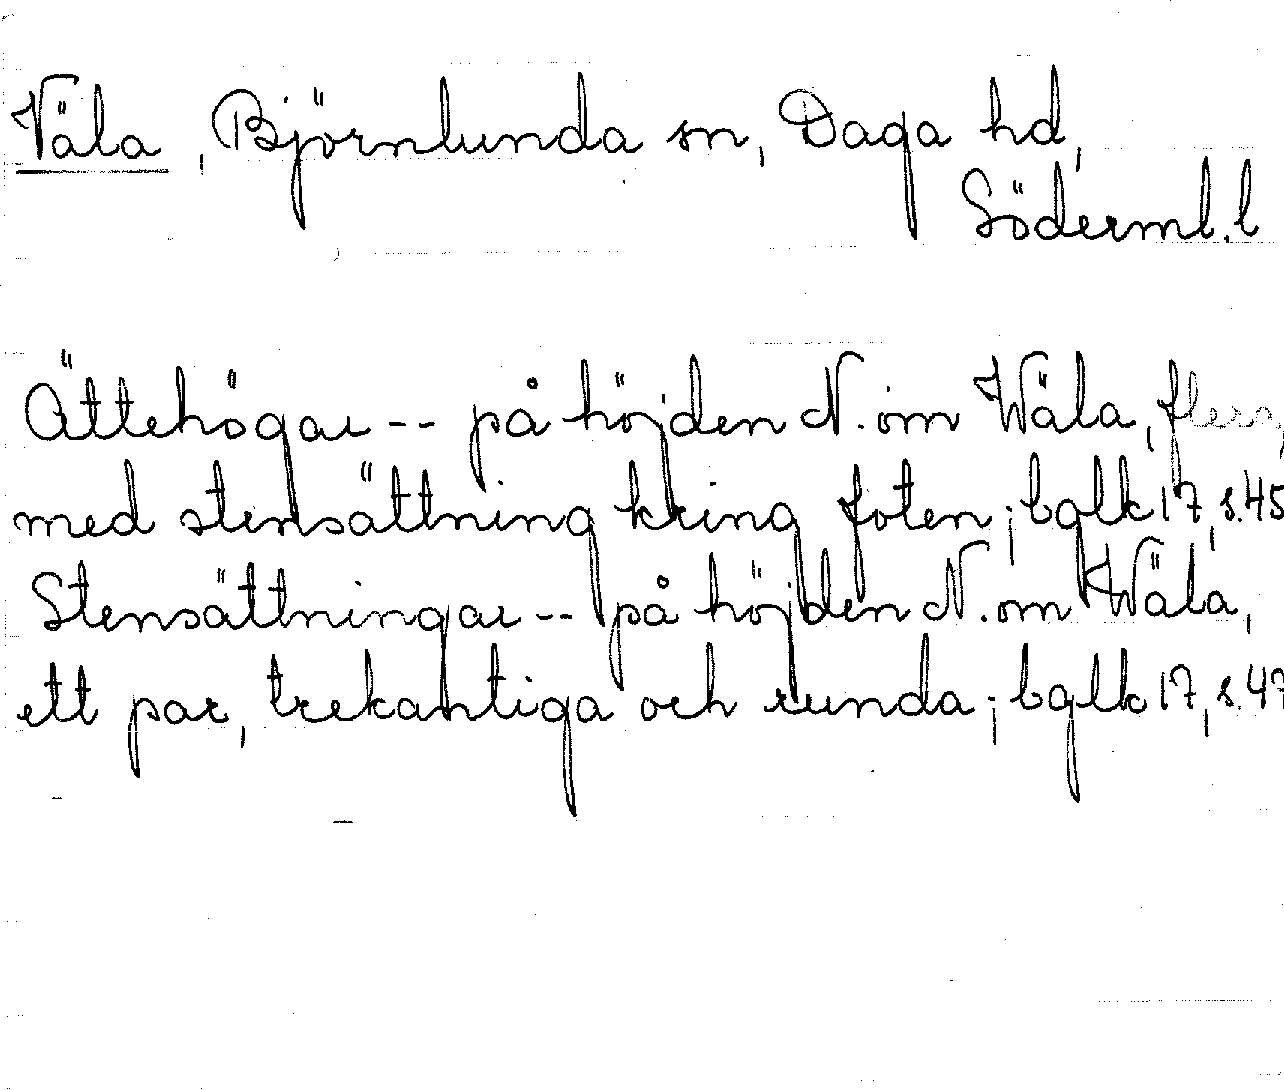 Väla, Björnlunda sn, Daga hd,
Söderml. l
Ättehögar -- på höjden N. om Wäla, flera
med stensättning kring foten; bglk 17, s. 45
Stensättningar -- på höjden N. om Wäla,
ett par, trekantiga och runda; bglk 17, s. 47